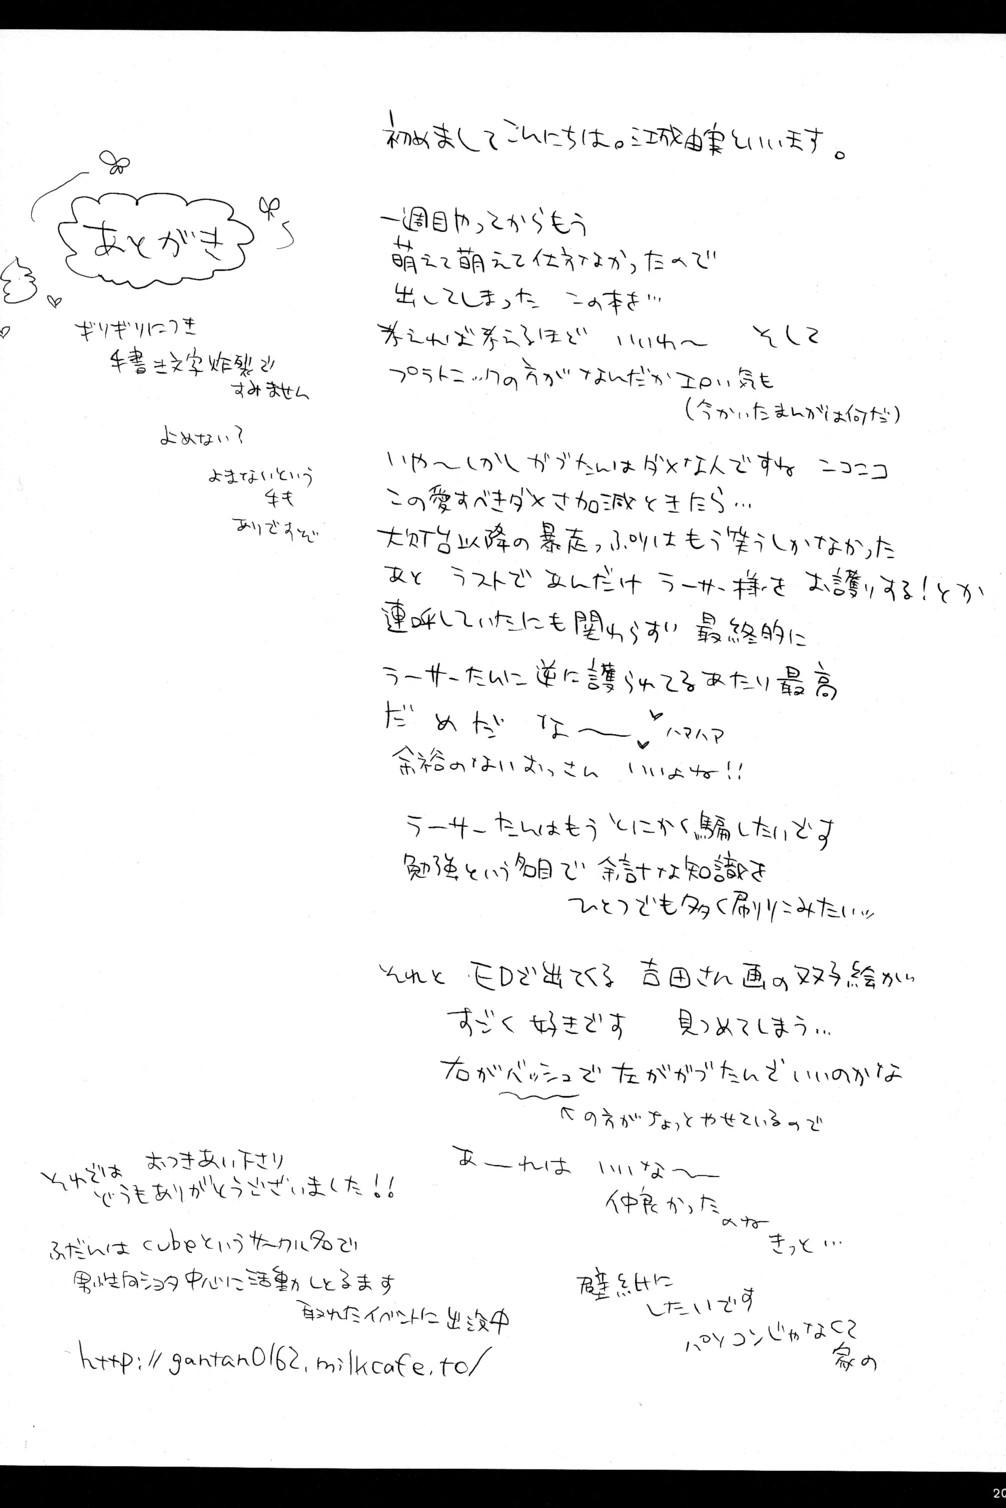 初めましてこんにちは。江城由実といいます。
あとがき
ギリギリにつき
手書き文字炸裂で
すみません
よめない?
よまないという
手も
ありですぞ
一週目やってからもう
萌えて萌えて仕方なかったので
出してしまった この本を…
考えれば考えるほど いいわ〜 そして
プラトニックの方がなんだかエロい気も
(今かいたまんがは何だ)
いや〜しかしガブたんはダメな人ですね ニコニコ
この愛すべきダメさ加減ときたら…
大灯台以降の暴走っぷりはもう笑うしかなかった
あと ラストで あんだけ ラーサー様を お護りする!とか
連呼していたにも関わらず 最終的に
ラーサーたんに逆に護られてるあたり最高
だめだ な〜 ハァハァ
余裕のないおっさん いいよね!!
ラーサーたんはもう とにかく騙したいです
勉強という名目で 余計な知識を
ひとつでも多く刷りこみたい…
それと EDで出てくる 吉田さん画の双子絵が
すごく好きです 見つめてしまう…
右がバッシュで左がガブたんでいいのかな
↖の方がちょっとやせているので
あーれは いいな〜
仲良かった
のね
きっと…
壁紙に
したいです
パソコンじゃなくて
家の
それでは おつきあい下さり
どうもありがとうございました!!
ふだんはcubeというサークル名で
男性向ショタ中心に活動しとるます
取れたイベントに出没中
http://gantan0162.milkcafe.to/
20